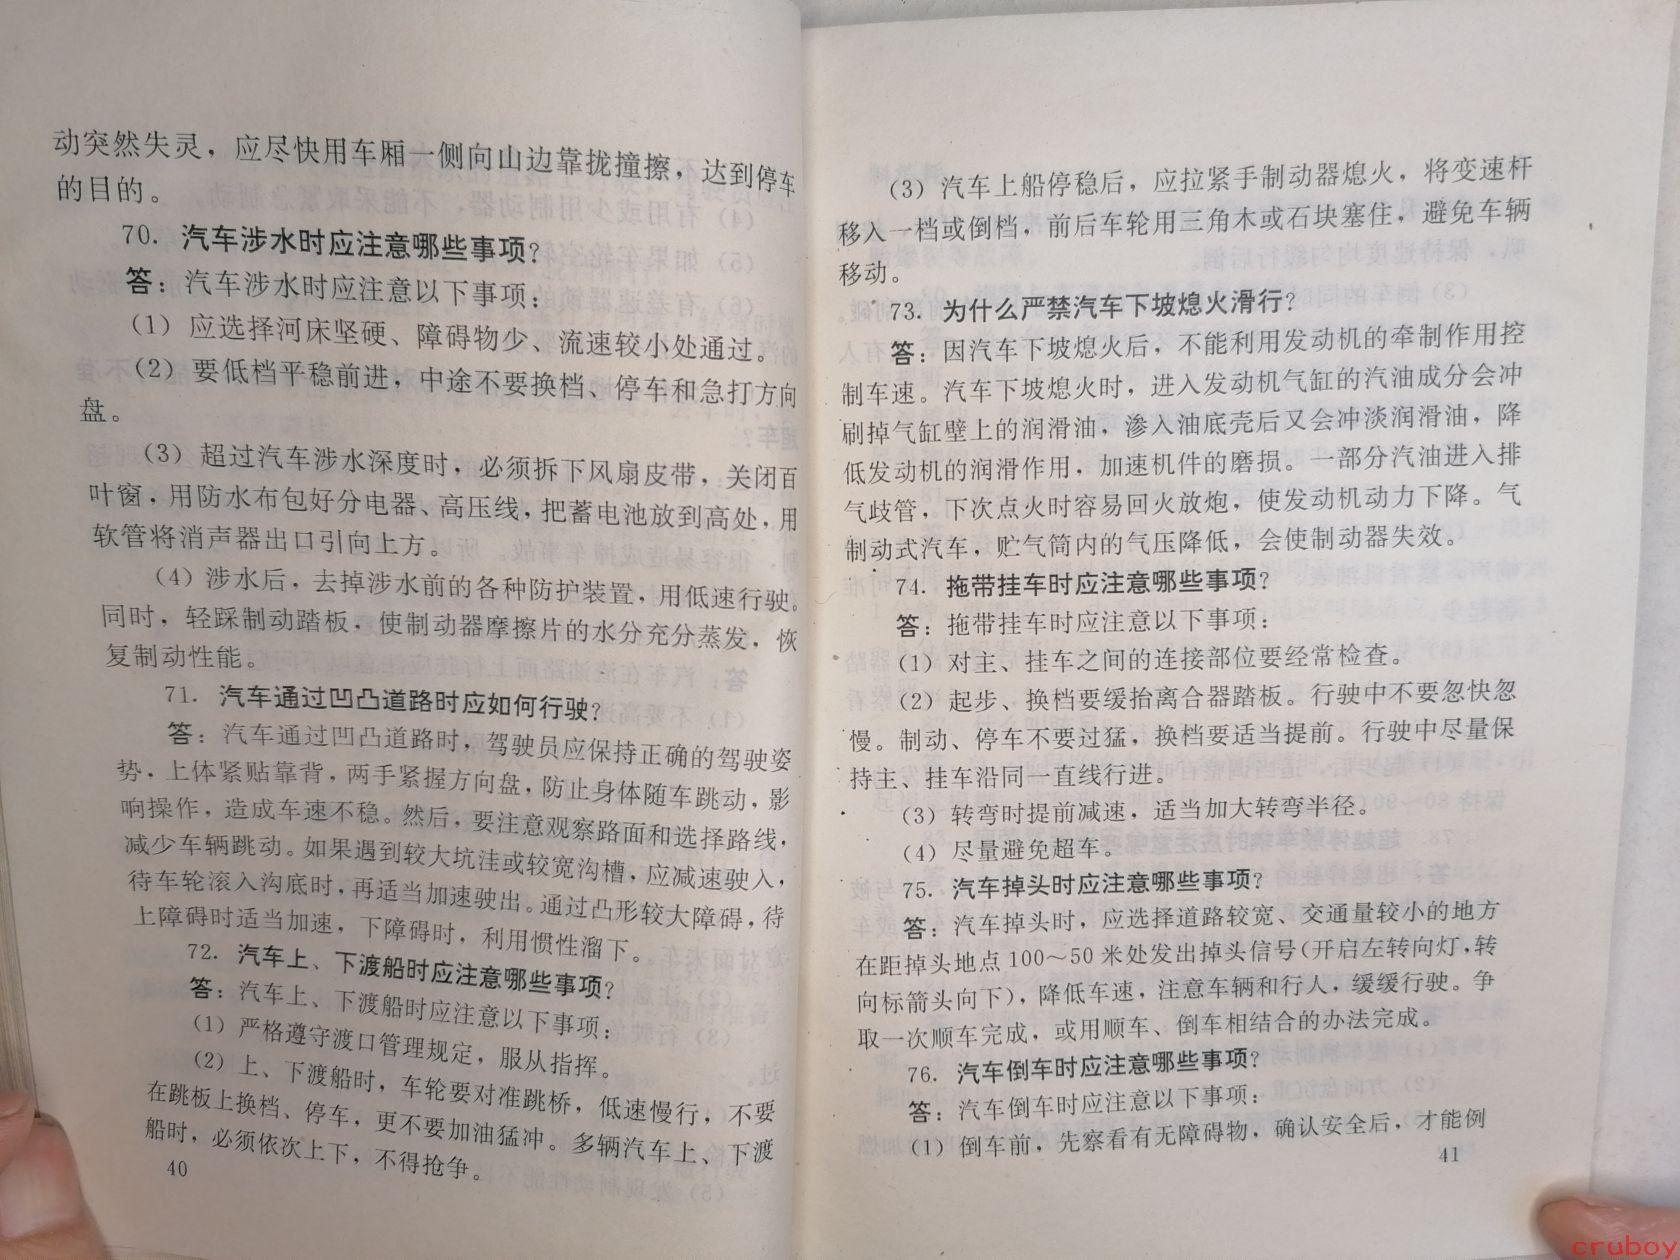 动突然失灵，应尽快用车厢一侧向山边靠拢撞擦，达到停车
的目的。
70. 汽车涉水时应注意哪些事项？
答：汽车涉水时应注意以下事项：
（1）应选择河床坚硬、障碍物少、流速较小处通过。
（2）要低档平稳前进，中途不要换档、停车和急打方向
盘。
（3）超过汽车涉水深度时，必须拆下风扇皮带，关闭百
叶窗，用防水布包好分电器、高压线，把蓄电池放到高处，用
软管将消声器出口引向上方。
（4）涉水后，去掉涉水前的各种防护装置，用低速行驶。
同时，轻踩制动踏板，使制动器摩擦片的水分充分蒸发，恢
复制动性能。
71. 汽车通过凹凸道路时应如何行驶？
答：汽车通过凹凸道路时，驾驶员应保持正确的驾驶姿
势，上体紧贴靠背，两手紧握方向盘，防止身体随车跳动，影
响操作，造成车速不稳。然后，要注意观察路面和选择路线，
减少车辆跳动。如果遇到较大坑洼或较宽沟槽，应减速驶入，
待车轮滚入沟底时，再适当加速驶出。通过凸形较大障碍，待
上障碍时适当加速，下障碍时，利用惯性溜下。
72. 汽车上、下渡船时应注意哪些事项？
答：汽车上、下渡船时应注意以下事项：
（1）严格遵守渡口管理规定，服从指挥。
（2）上、下渡船时，车轮要对准跳桥，低速慢行，不要
在跳板上换档、停车，更不要加油猛冲。多辆汽车上、下渡
船时，必须依次上下，不得抢争。
40
（3）汽车上船停稳后，应拉紧手制动器熄火，将变速杆
移入一档或倒档，前后车轮用三角木或石块塞住，避免车辆
移动。
73. 为什么严禁汽车下坡熄火滑行？
答：因汽车下坡熄火后，不能利用发动机的牵制作用控
制车速。汽车下坡熄火时，进入发动机气缸的汽油成分会冲
刷掉气缸壁上的润滑油，渗入油底壳后又会冲淡润滑油，降
低发动机的润滑作用，加速机件的磨损。一部分汽油进入排
气歧管，下次点火时容易回火放炮，使发动机动力下降。气
制动式汽车，贮气筒内的气压降低，会使制动器失效。
74. 拖带挂车时应注意哪些事项？
答：拖带挂车时应注意以下事项：
（1）对主、挂车之间的连接部位要经常检查。
（2）起步、换档要缓抬离合器踏板。行驶中不要忽快忽
慢。制动、停车不要过猛，换档要适当提前。行驶中尽量保
持主、挂车沿同一直线行进。
（3）转弯时提前减速，适当加大转弯半径。
（4）尽量避免超车。
75. 汽车掉头时应注意哪些事项？
答：汽车掉头时，应选择道路较宽、交通量较小的地方
在距掉头地点100～50米处发出掉头信号（开启左转向灯，转
向标箭头向下），降低车速，注意车辆和行人，缓缓行驶。争
取一次顺车完成，或用顺车、倒车相结合的办法完成。
76. 汽车倒车时应注意哪些事项？
答：汽车倒车时应注意以下事项：
（1）倒车前，先察看有无障碍物，确认安全后，才能倒
41
cruboy